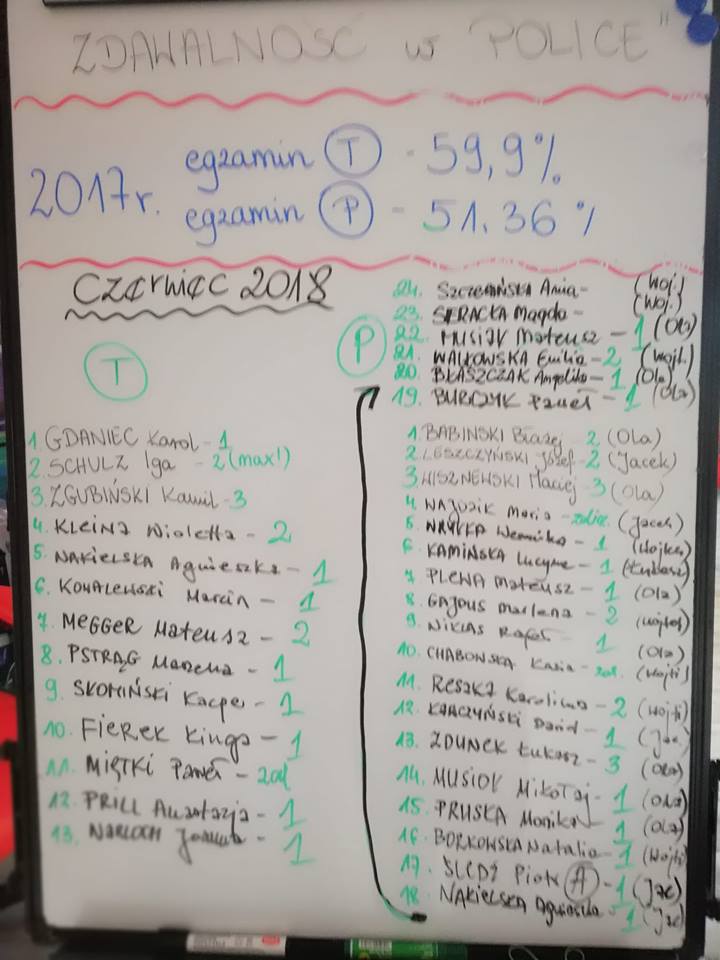 ZDAWALNOŚĆ w "POLICE"
2017r. egzamin T - 59,9%
egzamin P - 51.36%
Czerwiec 2018
T
1. GDANIEC Karol - 1
2. SCHULZ Iga - 2 (max!)
3. ZGUBIŃSKI Kamil - 3
4. KLEINA Wioletta - 2
5. NAKIELSKA Agnieszka - 1
6. KOWALEWSKI Marcin - 1
7. MEGGER Mateusz - 2
8. PSTRĄG Marzena - 1
9. SKOMIŃSKI Kacper - 1
10. FIEREK Kinga - 1
11. MIĘTKI Paweł - zal
12. PRILL Anastazja - 1
13. NARLOCH Joanna - 1
P
24. Ania - (Woj.)
23. Magda - (Woj.)
22. MUSIOŁ Mateusz - 1 (Ola)
21. WALKOWSKA Emilia - 2 (Wojt.)
20. BŁASZCZAK Angelika - 1 (Ola)
19. BURCZYK Paweł - 1 (Ola)
1. BABIŃSKI Błażej 2 (Ola)
2. LESZCZYŃSKI Józef - 2 (Jacek)
3. WISZNEWSKI Maciej - 3 (Ola)
4. Maria - zalicz. (Jacek)
5. Weronika - 1 (Wojtek)
6. KAMIŃSKA Lucyna - 1 (Łukasz)
7. PLEWA Mateusz - 1 (Ola)
8. GAJDUS Marlena - 2 (Wojtek)
9. NIKLAS Rafał - 1 (Ola)
10. CHABOWSKA Kasia - zal. (Wojti)
11. RESZKA Karolina - 2 (Wojti)
12. KARCZYŃSKI Dawid - 1 (Jac)
13. ZDUNEK Łukasz - 3 (Ola)
14. MUSIOŁ Mikołaj - 1 (Ola)
15. PRUSKA Monika 1 (Ola)
16. BORKOWSKA Natalia - 1 (Wojti)
17. ŚLEDŹ Piotr A - 1 (Jac)
18. NAKIELSKA Agnieszka - 1 (Jac)